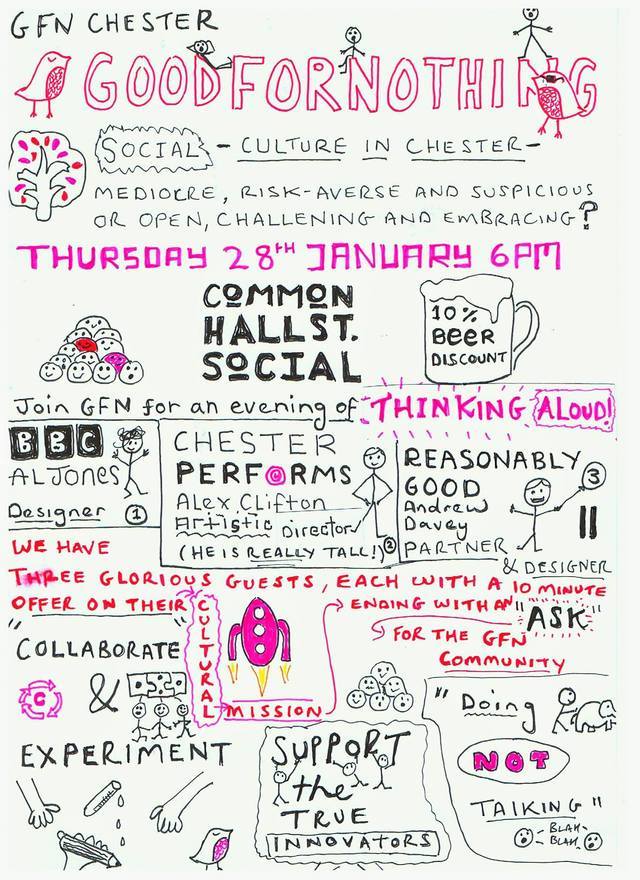 GFN CHESTER
GOODFORNOTHING
SOCIAL - CULTURE IN CHESTER -
MEDIOCRE, RISK-AVERSE AND SUSPICIOUS
OR OPEN, CHALLENING AND EMBRACING?
THURSDAY 28TH JANUARY 6PM
COMMON
HALL ST.
SOCIAL
10%
BEER
DISCOUNT
Join GFN for an evening of THINKING ALOUD!
BBC
AL JONES
Designer 1
CHESTER
PERFORMS
Alex Clifton
Artistic Director
(HE IS REALLY TALL!) 2
REASONABLY
GOOD
Andrew
Davey
PARTNER
& DESIGNER
3
WE HAVE
THREE GLORIOUS GUESTS, EACH WITH A 10 MINUTE
OFFER ON THEIR CULTURAL MISSION
ENDING WITH AN "ASK"
FOR THE GFN
COMMUNITY
"COLLABORATE
C
&
EXPERIMENT
SUPPORT
the
TRUE
INNOVATORS
"Doing
NOT
TALKING"
BLAH-
BLAH